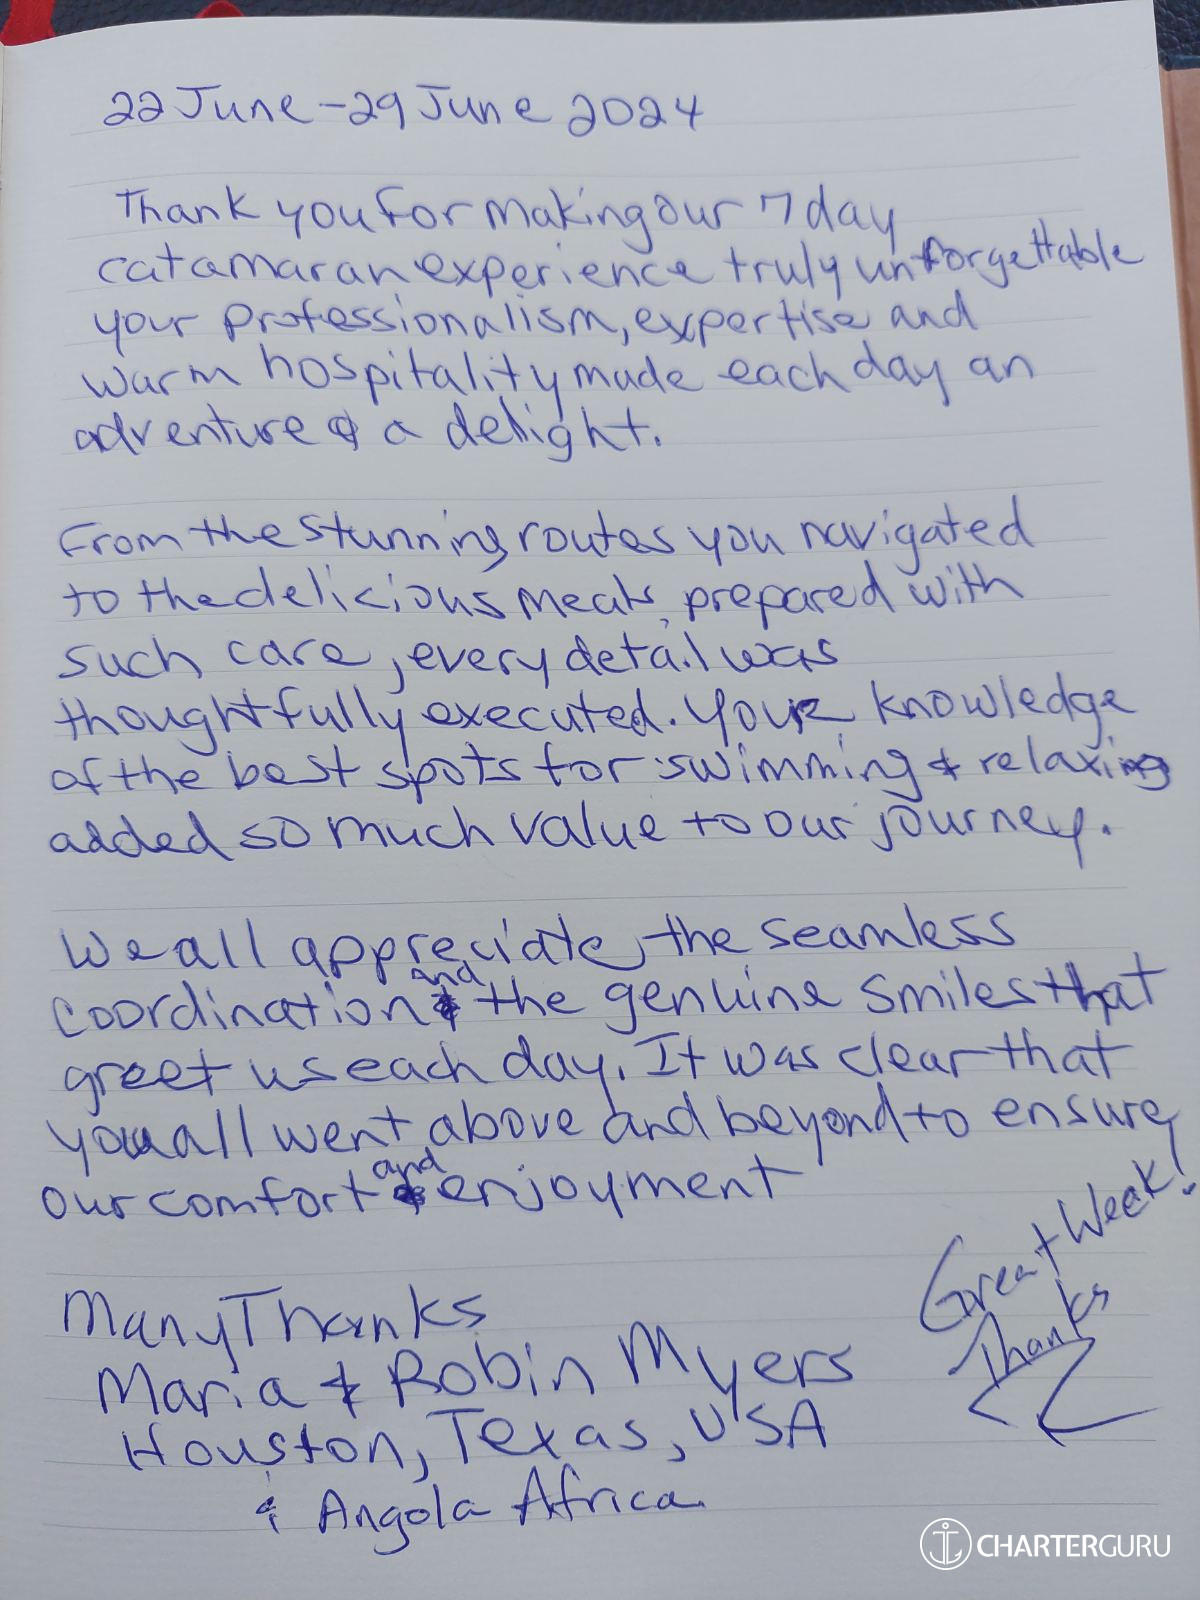 22 June - 29 June 2024
Thank you for making our 7 day
catamaran experience truly unforgettable
your professionalism, expertise and
warm hospitality made each day an
adventure & a delight.
From the stunning routes you navigated
to the delicious meals prepared with
such care, every detail was
thoughtfully executed. Your knowledge
of the best spots for swimming & relaxing
added so much value to our journey.
We all appreciate the seamless
coordination and the genuine smiles that
greet us each day. It was clear that
you all went above and beyond to ensure
our comfort and enjoyment
Many Thanks
Maria & Robin Myers
Houston, Texas, USA
& Angola Africa.
Great Week!
Thanks
CHARTERGURU